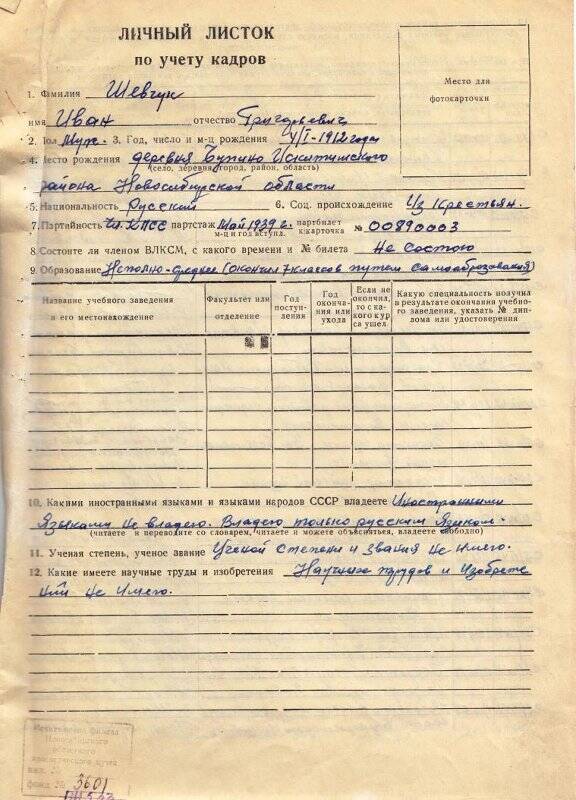 ЛИЧНЫЙ ЛИСТОК
по учету кадров
Место для
фотокарточки
1. Фамилия Шевчук
имя Иван отчество Григорьевич
2. Пол Муж. 3. Год, число и м-ц рождения 4/I-1912 года
4. Место рождения деревня Бурмино Искитимского
(село, деревня, город, район, область)
района Новосибирской области
5. Национальность Русский 6. Соц. происхождение Из Крестьян.
7. Партийность чл. КПСС партстаж Май 1939 г. партбилет
м-ц и год вступл. к.карточка № 00890003
8. Состоите ли членом ВЛКСМ, с какого времени и № билета Не состою
9. Образование Неполно-среднее (окончил 7 классов путем самообразования)
Название учебного заведения и его местонахождение
Факультет или отделение
Год поступления
Год окончания или ухода
Если не окончил, то с какого курса ушел
Какую специальность получил в результате окончания учебного заведения, указать № диплома или удостоверения
10. Какими иностранными языками и языками народов СССР владеете Иностранными
языками не владею. Владею только русским языком.
(читаете и переводите со словарем, читаете и можете объясняться, владеете свободно)
11. Ученая степень, ученое звание Ученой степени и звания не имею.
12. Какие имеете научные труды и изобретения Научных трудов и изобрете
ний не имею.
Искитимский филиал
Новосибирского
областного
краеведческого музея
фонд № 3601